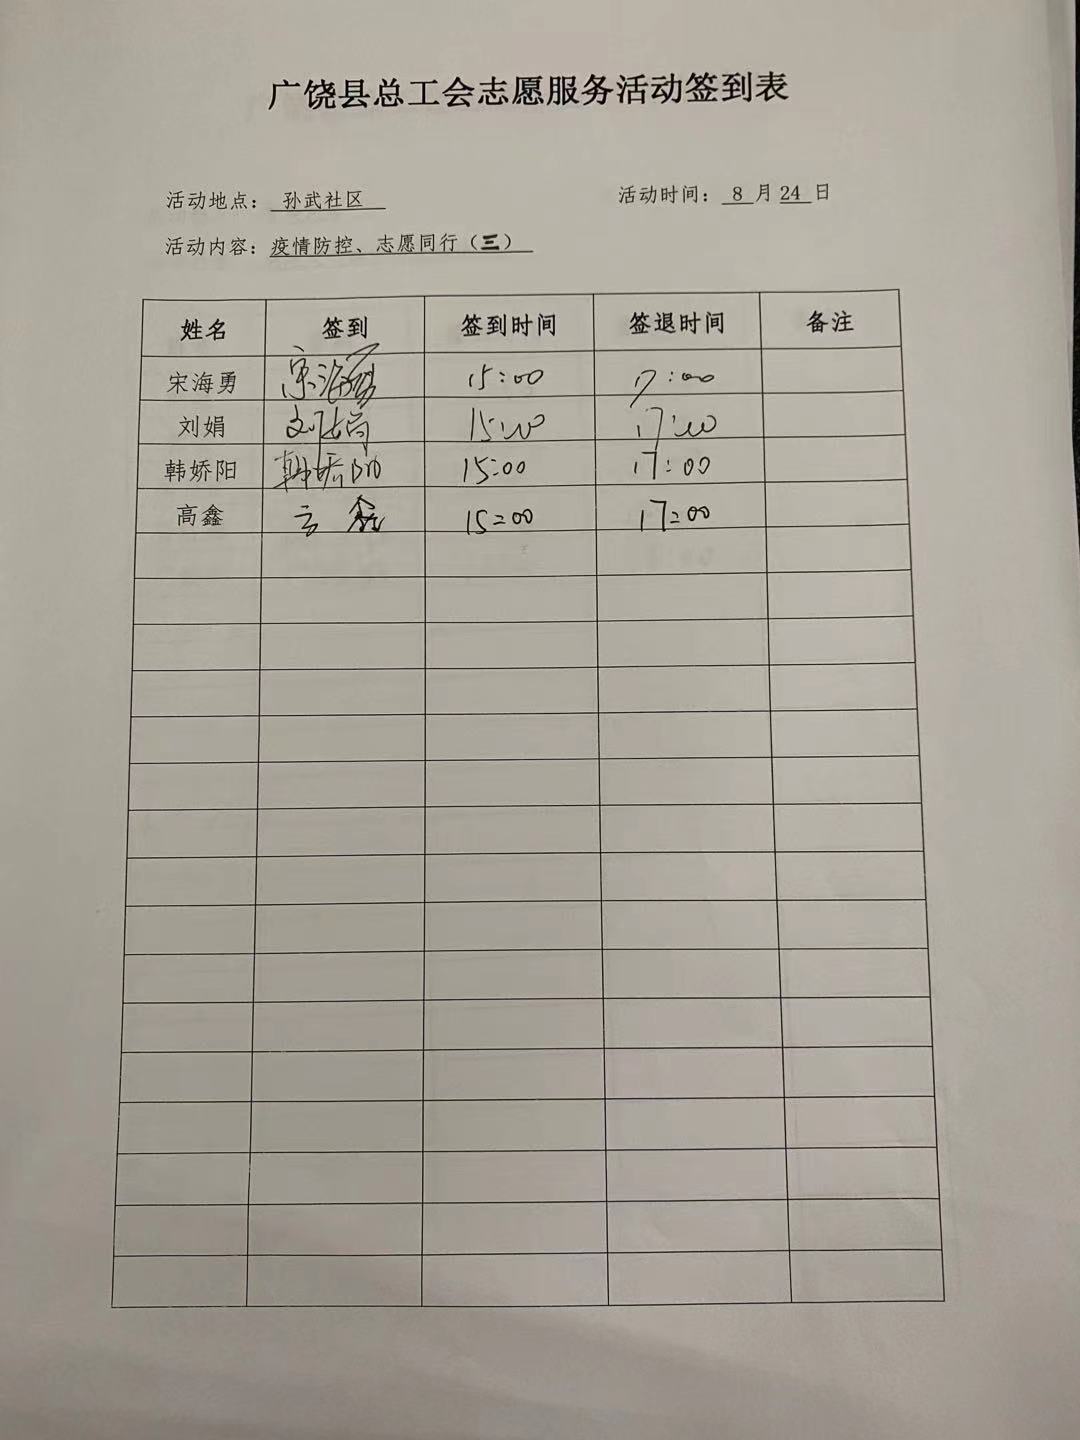 广饶县总工会志愿服务活动签到表
活动地点： 孙武社区 活动时间： 8 月 24 日
活动内容：疫情防控、志愿同行（三）
姓名 签到 签到时间 签退时间 备注
宋海勇 宋海勇 15:00 17:00
刘娟 刘娟 15:00 17:00
韩娇阳 韩娇阳 15:00 17:00
高鑫 高鑫 15:00 17:00